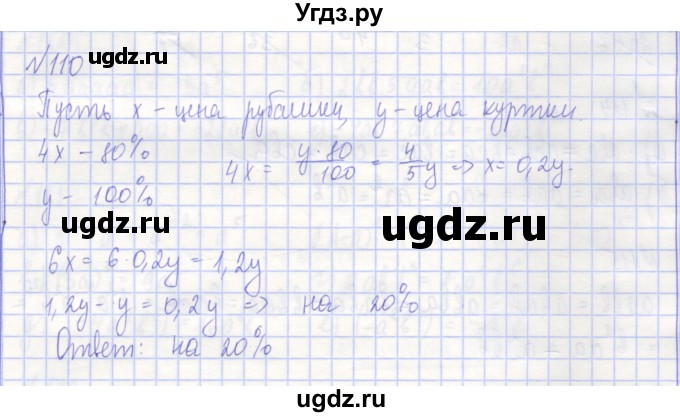 Угдз.ру
№110
ugdz.ru
Пусть x - цена рубашки, y - цена куртки.
4x - 80%
4x = y·80/100 = 4/5 y => x = 0,2y.
y - 100%
ugdz.ru
ugdz.ru
6x = 6·0,2y = 1,2y
1,2y - y = 0,2y => на 20%
Ответ: на 20%
ugdz.ru
ugdz.ru